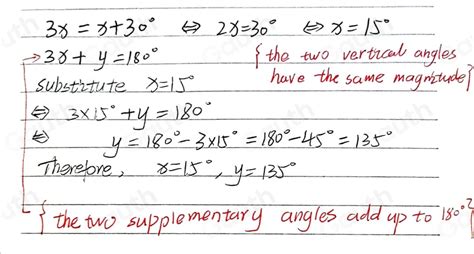 3x = x+30° ⇔ 2x=30° ⇔ x=15°
→3x + y =180° {the two vertical angles
have the same magnitude}
substitute x=15°
⇔ 3×15°+y=180°
⇔ y=180°-3×15°=180°-45°=135°
Therefore, x=15°, y=135°
{the two supplementary angles add up to 180°}